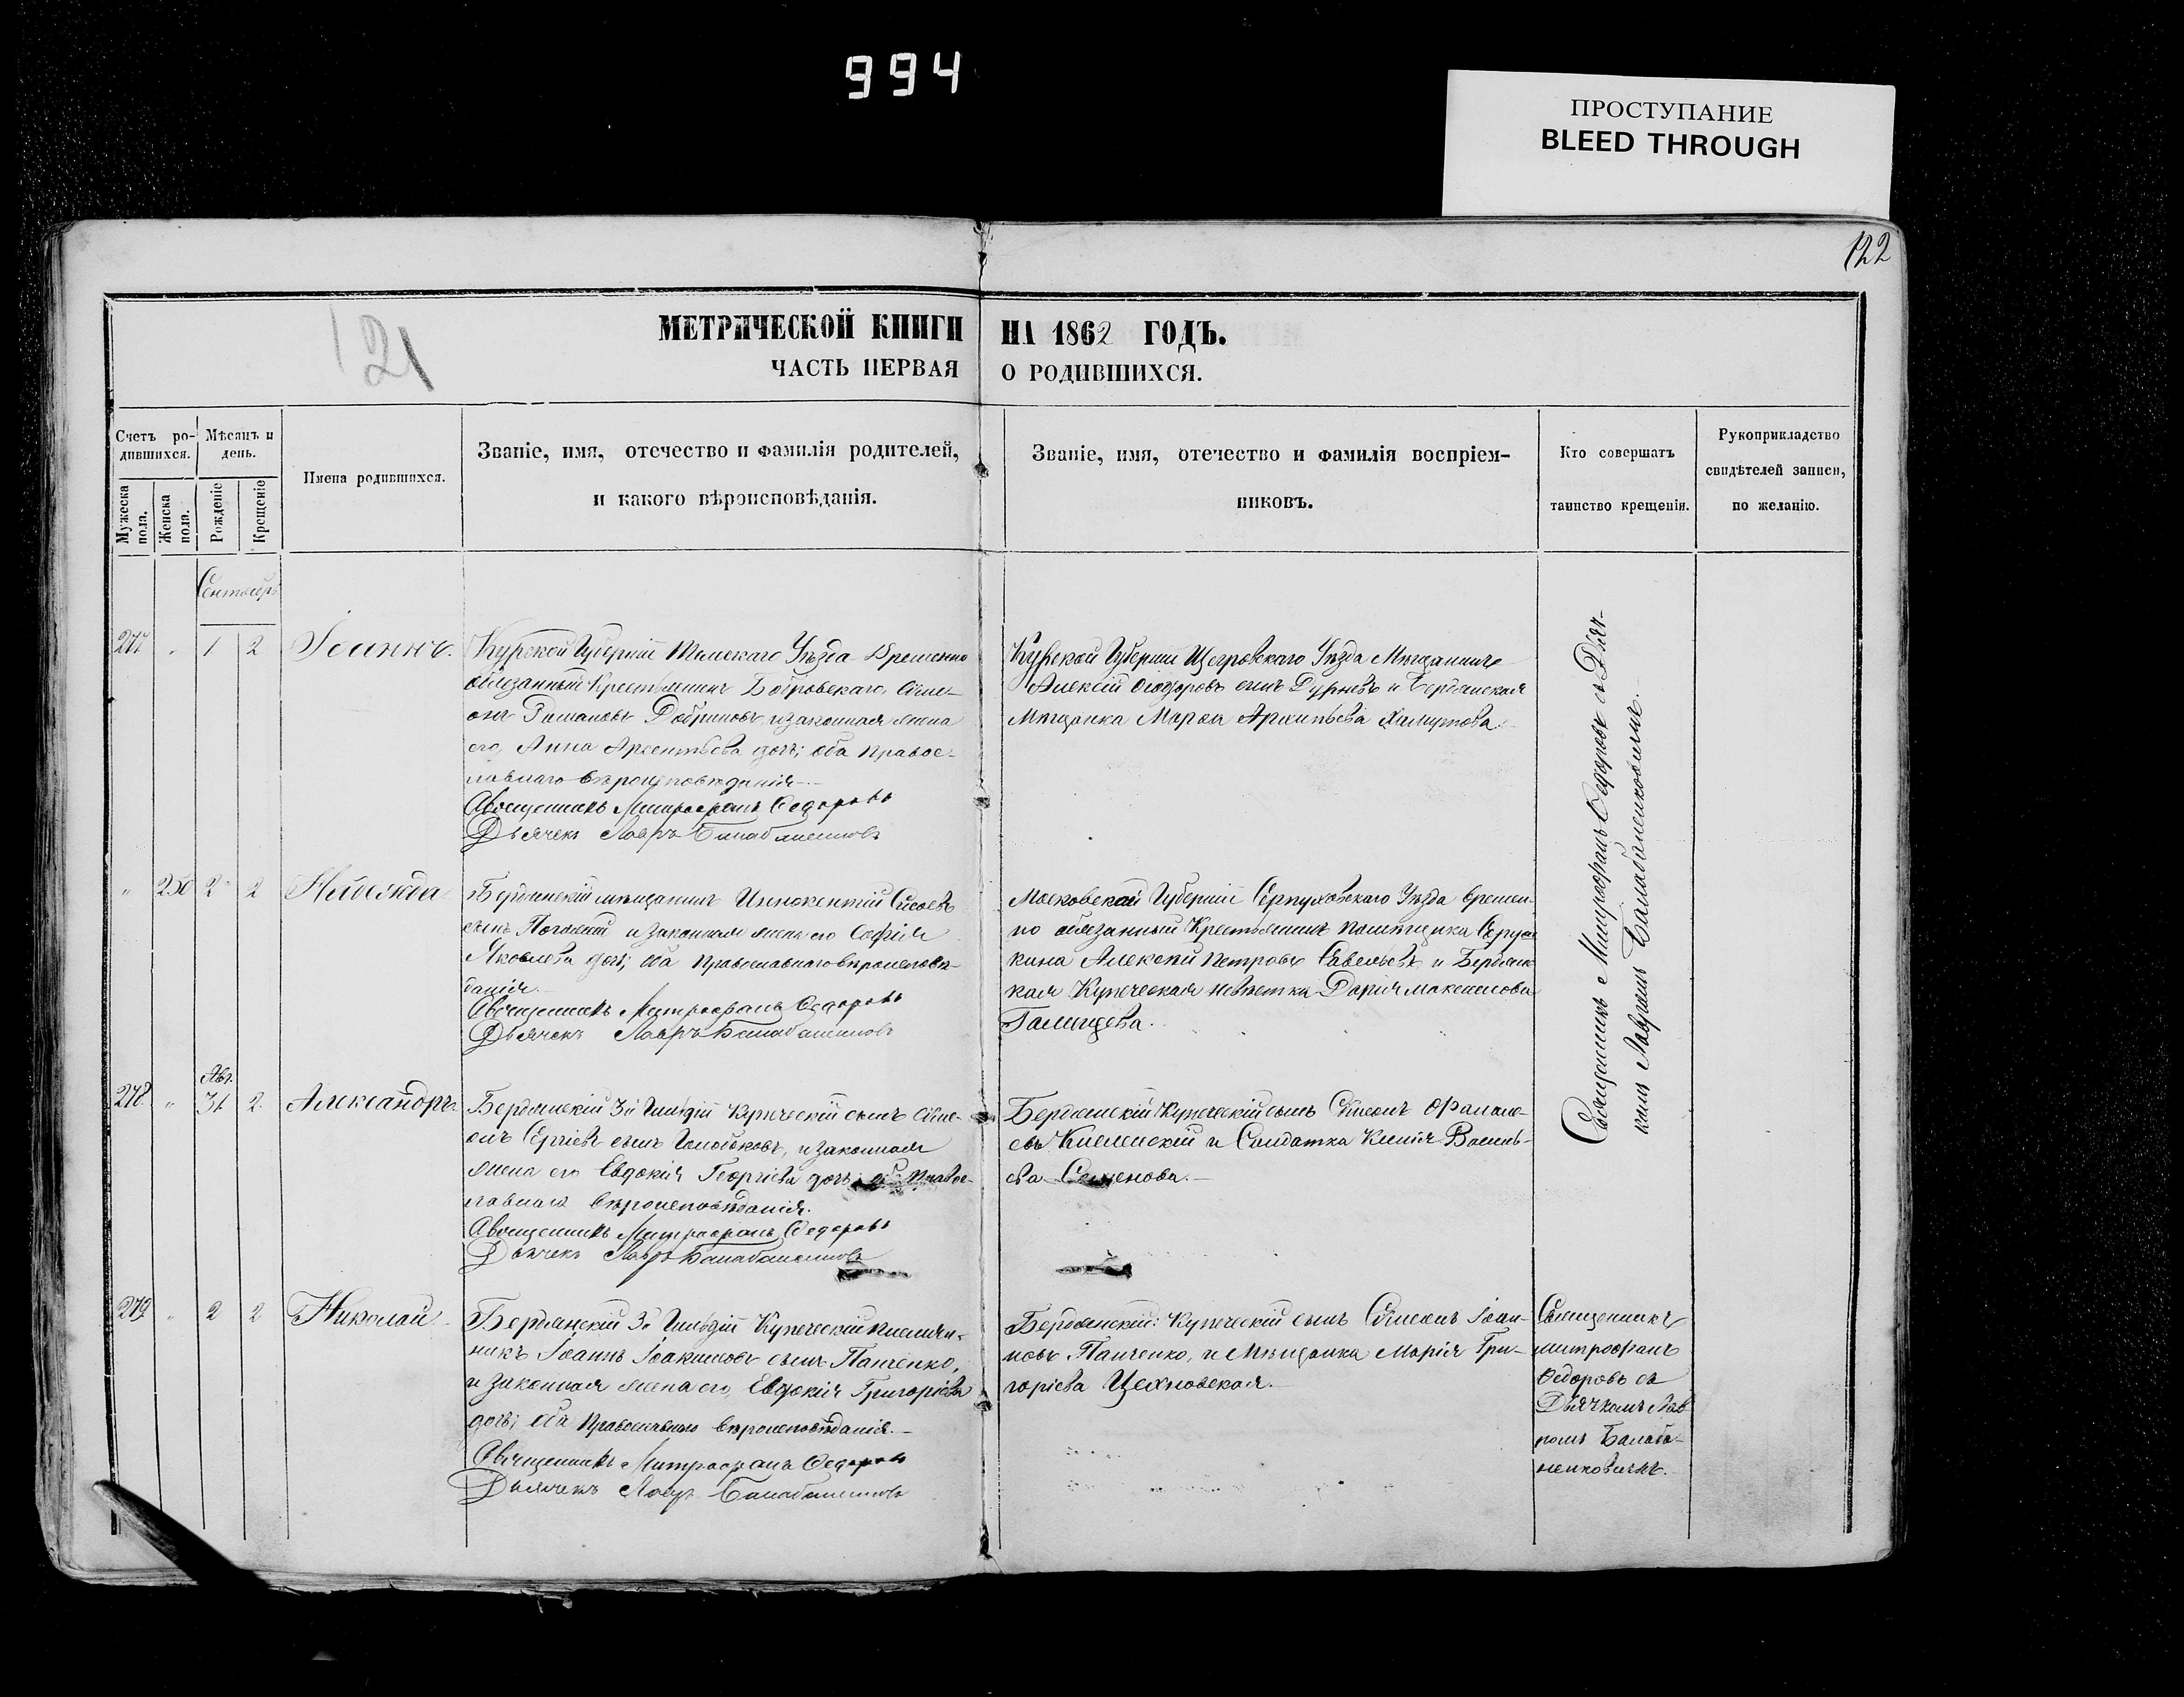 994
ПРОСТУПАНИЕ
BLEED THROUGH
122
121
МЕТРИЧЕСКОЙ КНИГИ НА 1862 ГОДЪ.
ЧАСТЬ ПЕРВАЯ О РОДИВШИХСЯ.
Счетъ ро-
дившихся.
Мужеска пола.
Женска пола.
Мѣсяцъ и
день.
Рожденіе
Крещеніе
Имена родившихся.
Званіе, имя, отечество и фамилія родителей,
и какого вѣроисповѣданія.
Званіе, имя, отечество и фамилія воспріем-
никовъ.
Кто совершатъ
таинство крещенія.
Рукоприкладство
свидѣтелей записи,
по желанію.
Сентябрь
277 " 1 2 Іоаннъ.
Курской Губерніи Уѣзда Временно
обязанный Крестьянинъ Сѵме-
онъ Романовъ и законная жена
его Анна дочь; оба Правос-
лавнаго вѣроисповѣданія.
Священникъ Митрофанъ Ѳедоровъ
Дьячекъ Лавръ
Курской Губерніи Щигровскаго Уѣзда Мѣщанинъ
Алексій Ѳеодоровъ сынъ Дурневъ и Бердянская
Мѣщанка Марѳа Архипьева
Священникъ Митрофанъ Ѳедоровъ съ Дьяч-
комъ Лавромъ Балабаненковымъ.
" 250 2 2 Надежда.
Бердянскій мѣщанинъ Иннокентій
сынъ и законная жена его Софія
Яковлева дочь; оба Православнаго вѣроисповѣ-
данія.
Священникъ Митрофанъ Ѳедоровъ
Дьячекъ Лавръ
Московской Губерніи Серпуховскаго Уѣзда времен-
но обязанный Крестьянинъ помѣщика
кина Алексѣй Петровъ Савельевъ и Бердянс-
кая Купеческая невѣстка Дарія Максимова
Галищева.
Авг.
278 " 31 2 Александръ.
Бердянскій 3й Гильдіи Купеческій сынъ Сѵме-
онъ Сергіевъ сынъ и законная
жена его Евдокія Георгіева дочь; оба Правос-
лавнаго вѣроисповѣданія.
Священникъ Митрофанъ Ѳедоровъ
Дьячекъ Лавръ
Бердянскій Купеческій сынъ Сѵмеонъ
и Солдатка Василь-
ева Семенова.
279 " 2 2 Николай.
Бердянскій 3й Гильдіи Купеческій племян-
никъ Іоаннъ Іоакимовъ сынъ Панченко,
и законная жена его, Евдокія Григоріева
дочь; оба Православнаго вѣроисповѣданія.
Священникъ Митрофанъ Ѳедоровъ
Дьячекъ Лавръ
Бердянскій: Купеческій сынъ Сѵмеонъ Іоан-
новъ Панченко, и Мѣщанка Марія Гри-
горіева Цехновская.
Священникъ
Митрофанъ
Ѳедоровъ съ
Дьячкомъ Лав
ромъ Балаба-
ненковымъ.